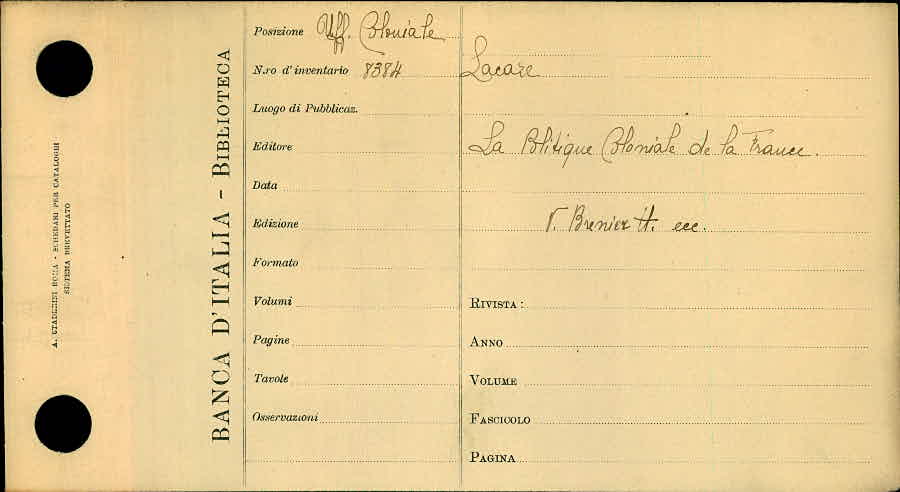 A. STADERINI ROMA - SCHEDARI PER CATALOGHI
SISTEMA BREVETTATO
BANCA D'ITALIA - BIBLIOTECA
Posizione Uff. Coloniale
N.ro d'inventario 8384
Luogo di Pubblicaz.
Editore
Data
Edizione
Formato
Volumi
Pagine
Tavole
Osservazioni
Lacaze
La Politique Coloniale de la France.
V. Brenier H. ecc.
RIVISTA:
ANNO
VOLUME
FASCICOLO
PAGINA